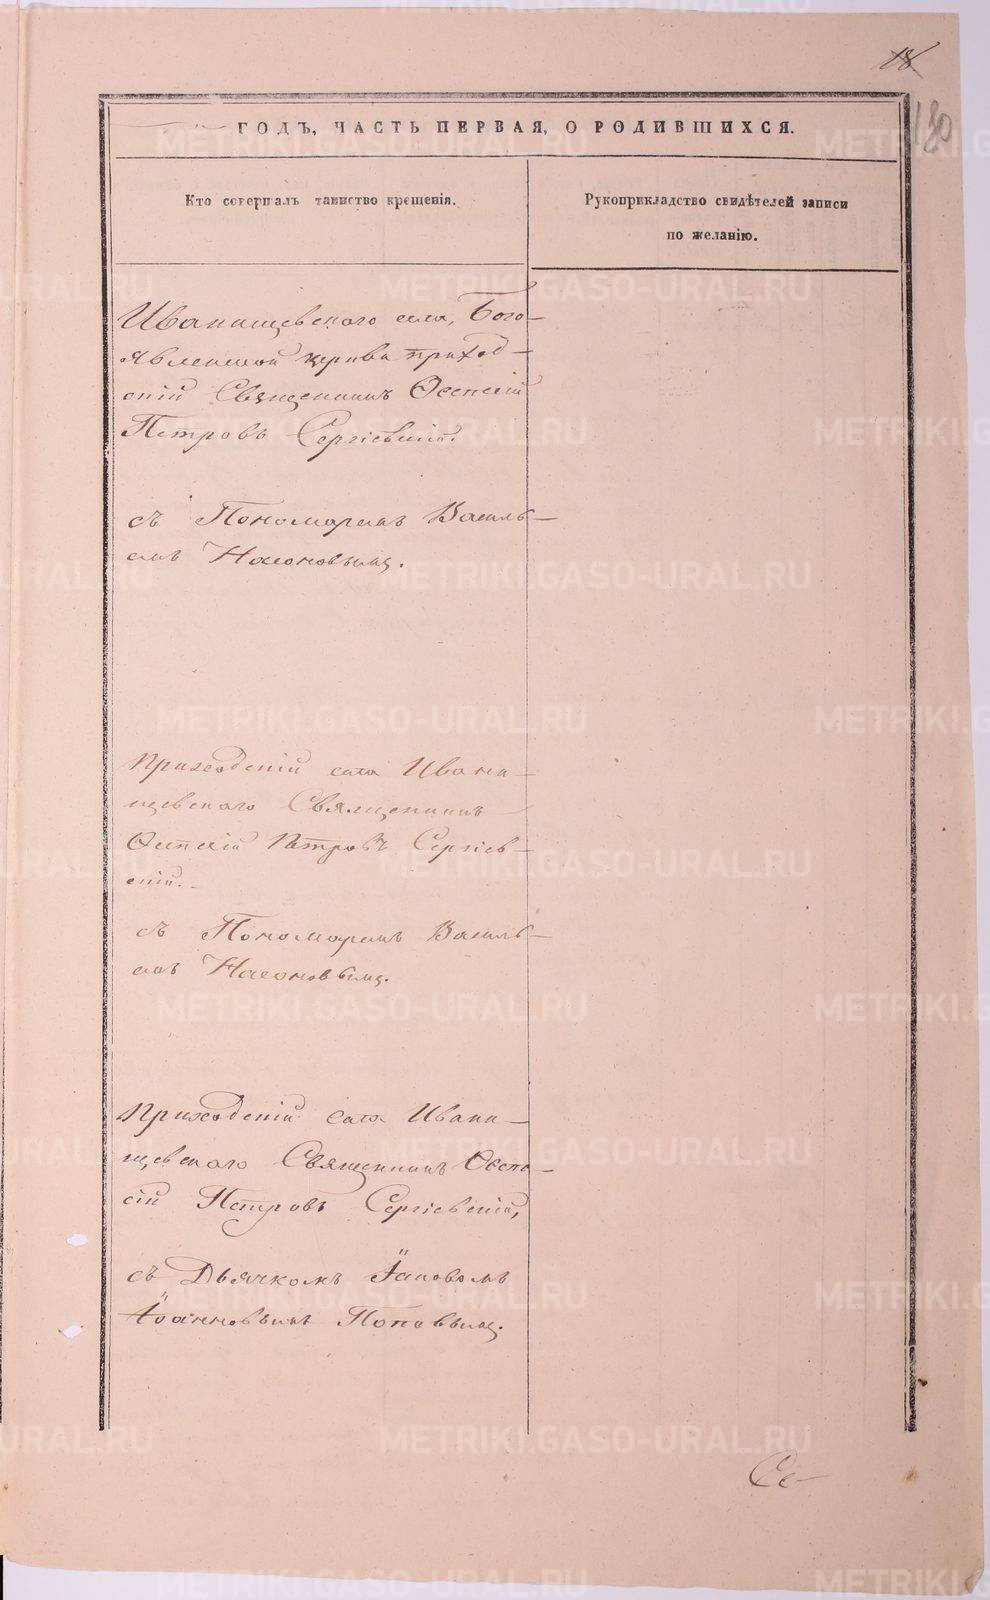 18
130
ГОДЪ, ЧАСТЬ ПЕРВАЯ, О РОДИВШИХСЯ.
Кто совершалъ таинство крещенія.
Рукоприкладство свидѣтелей записи
по желанію.
Иванищевскаго села, Бого-
явленской церкви приход-
скій Священникъ
Петровъ Сергіевскій.
съ Пономаремъ Василь-
емъ Насоновымъ.
Приходскій села Ивани-
щевскаго Священникъ
Петровъ Сергіев-
скій.
съ Пономаремъ Василь-
емъ Насоновымъ.
Приходскій села Ивани-
щевскаго Священникъ
Петровъ Сергіевскій,
съ Дьячкомъ Іаковомъ
Іоанновымъ Поповымъ.
Се-
METRIKI.GASO-URAL.RU